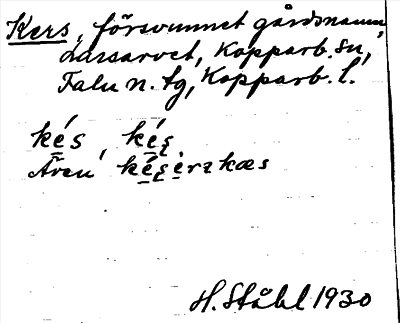 Kers, försvunnet gårdsnamn,
Larsarvet, Kopparb. sn,
Falu n. tg, Kopparb. l.
kés, kés̨
Även
H. Ståhl 1930